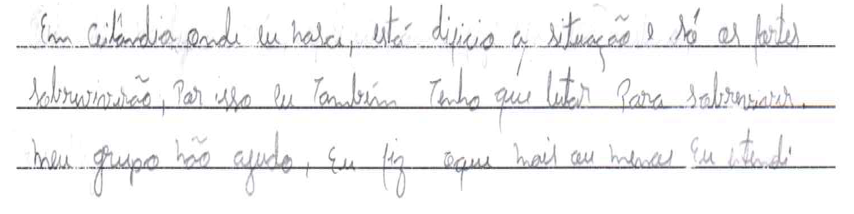 Em Ceilândia onde eu nasci, está dificio a situação e só os fortes
sobreviverão, Por isso eu Também Tenho que lutar Para sobreviver.
meu grupo não ajudo, Eu fiz oque mais ou menos Eu entendi